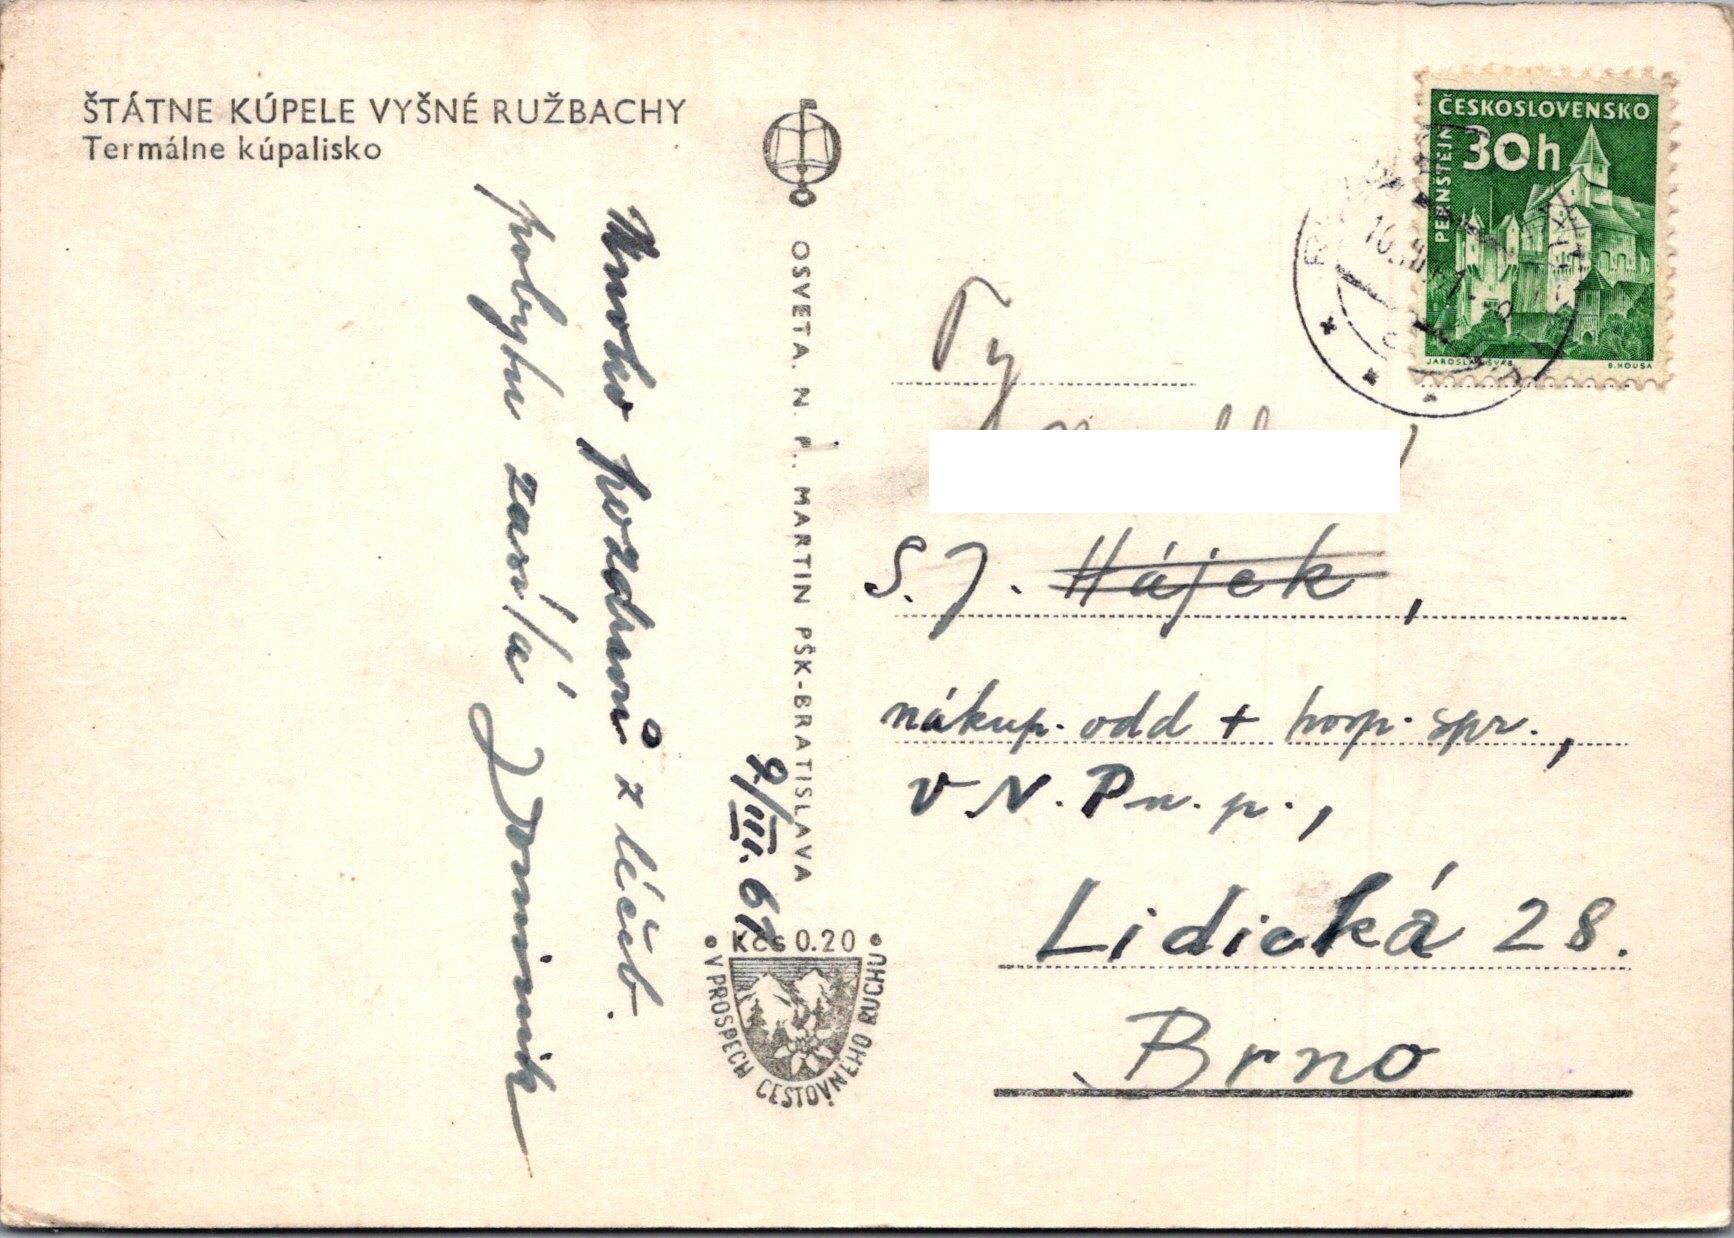 ŠTÁTNE KÚPELE VYŠNÉ RUŽBACHY
Termálne kúpalisko
Mnoho pozdravů z léčeb.
pobytu zasílá
J Dominik
9./III. 61
OSVETA, N. P., MARTIN PŠK-BRATISLAVA
Kčs 0.20
V PROSPECH CESTOVNÉHO RUCHU
ČESKOSLOVENSKO
PERNŠTEJN
30h
JAROSLAV ŠVÁB
B. HOUSA
S. J. Hájek,
nákup. odd + hosp. spr.,
V N. P n. p.,
Lidická 28.
Brno